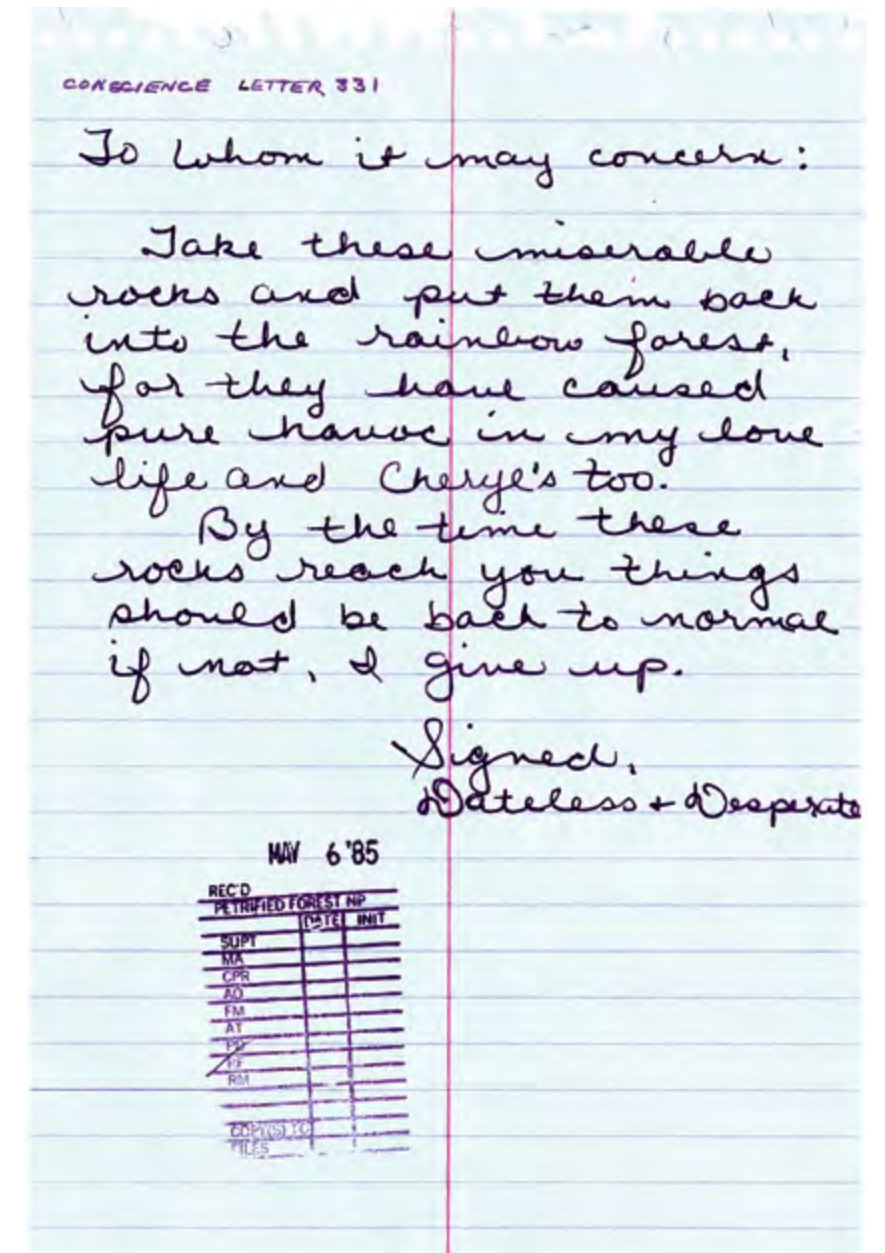 CONSCIENCE LETTER 331
To Whom it may concern:
Take these miserable
rocks and put them back
into the rainbow forest,
for they have caused
pure havoc in my love
life and Cheryl's too.
By the time these
rocks reach you things
should be back to normal
if not, I give up.
Signed,
Dateless + Desperate
MAY 6 '85
REC'D
PETRIFIED FOREST NP
DATE INIT
SUPT
MA
CPR
AO
FM
AT
PF
RM
COPY(S) TO
FILES